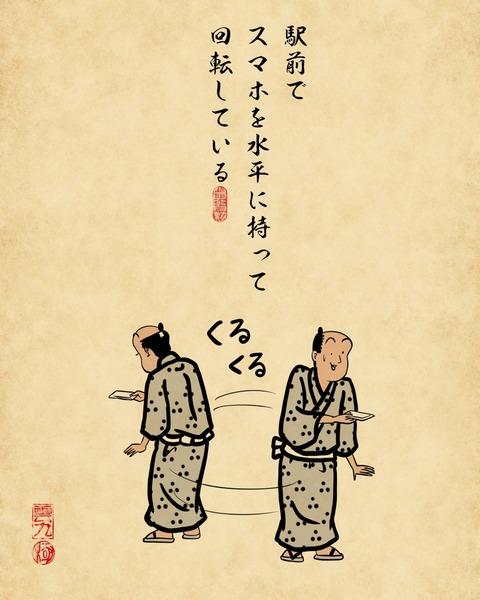 駅前で
スマホを水平に持って
回転している
くるくる